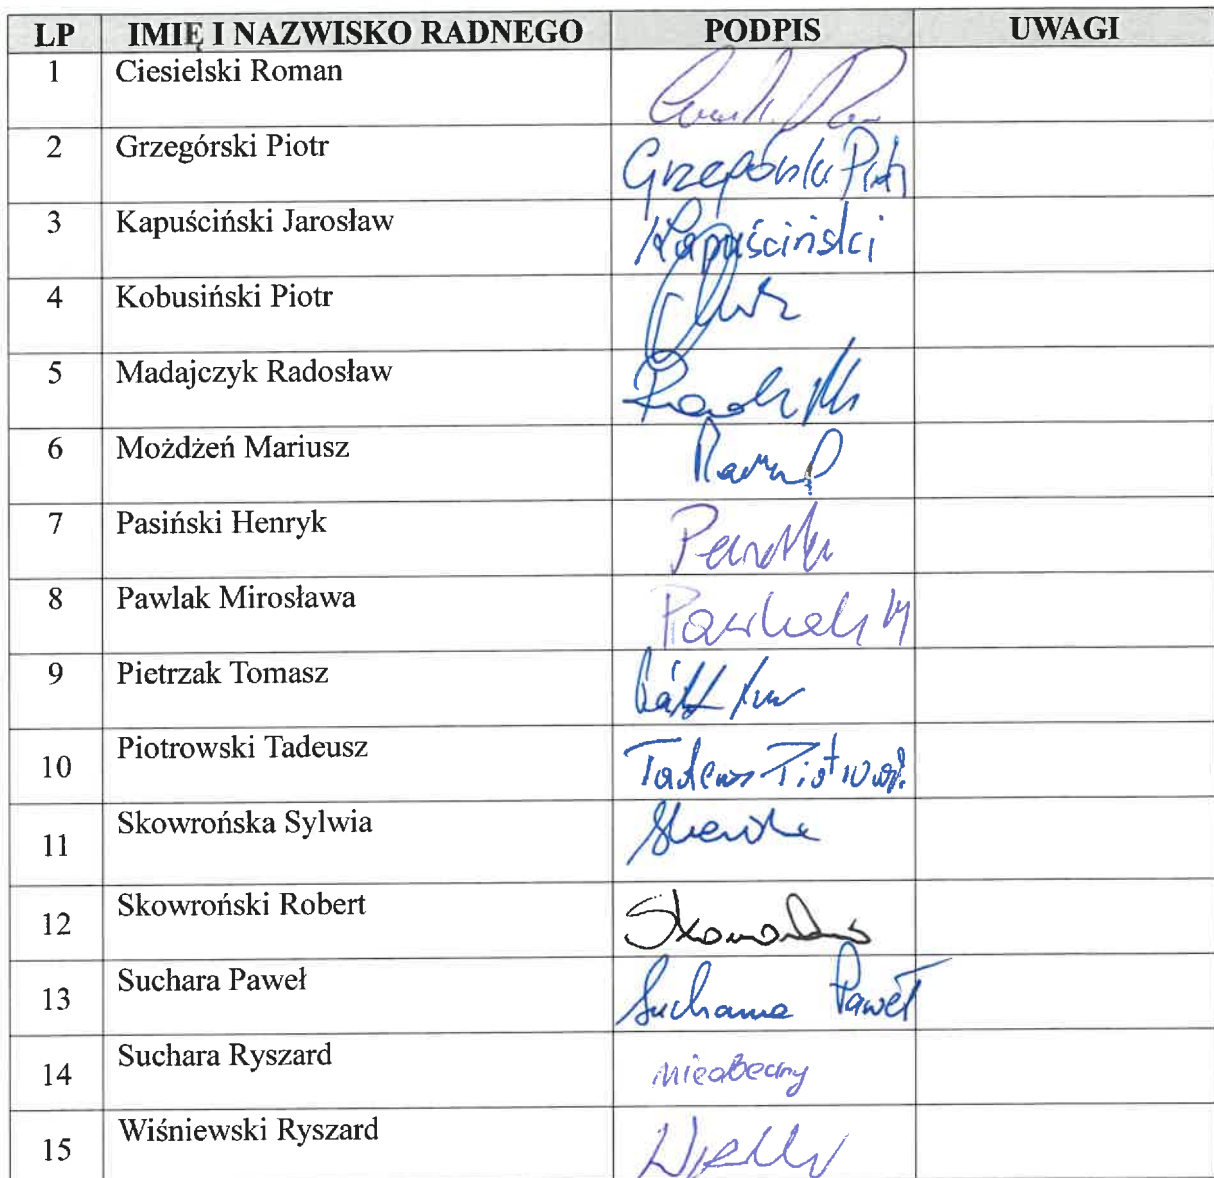 LP IMIĘ I NAZWISKO RADNEGO PODPIS UWAGI
1 Ciesielski Roman
2 Grzegórski Piotr Grzegórski Piotr
3 Kapuściński Jarosław Kapuściński
4 Kobusiński Piotr
5 Madajczyk Radosław
6 Możdżeń Mariusz
7 Pasiński Henryk
8 Pawlak Mirosława Pawlak M
9 Pietrzak Tomasz
10 Piotrowski Tadeusz Tadeusz Piotrowski
11 Skowrońska Sylwia
12 Skowroński Robert
13 Suchara Paweł Suchara Paweł
14 Suchara Ryszard nieobecny
15 Wiśniewski Ryszard